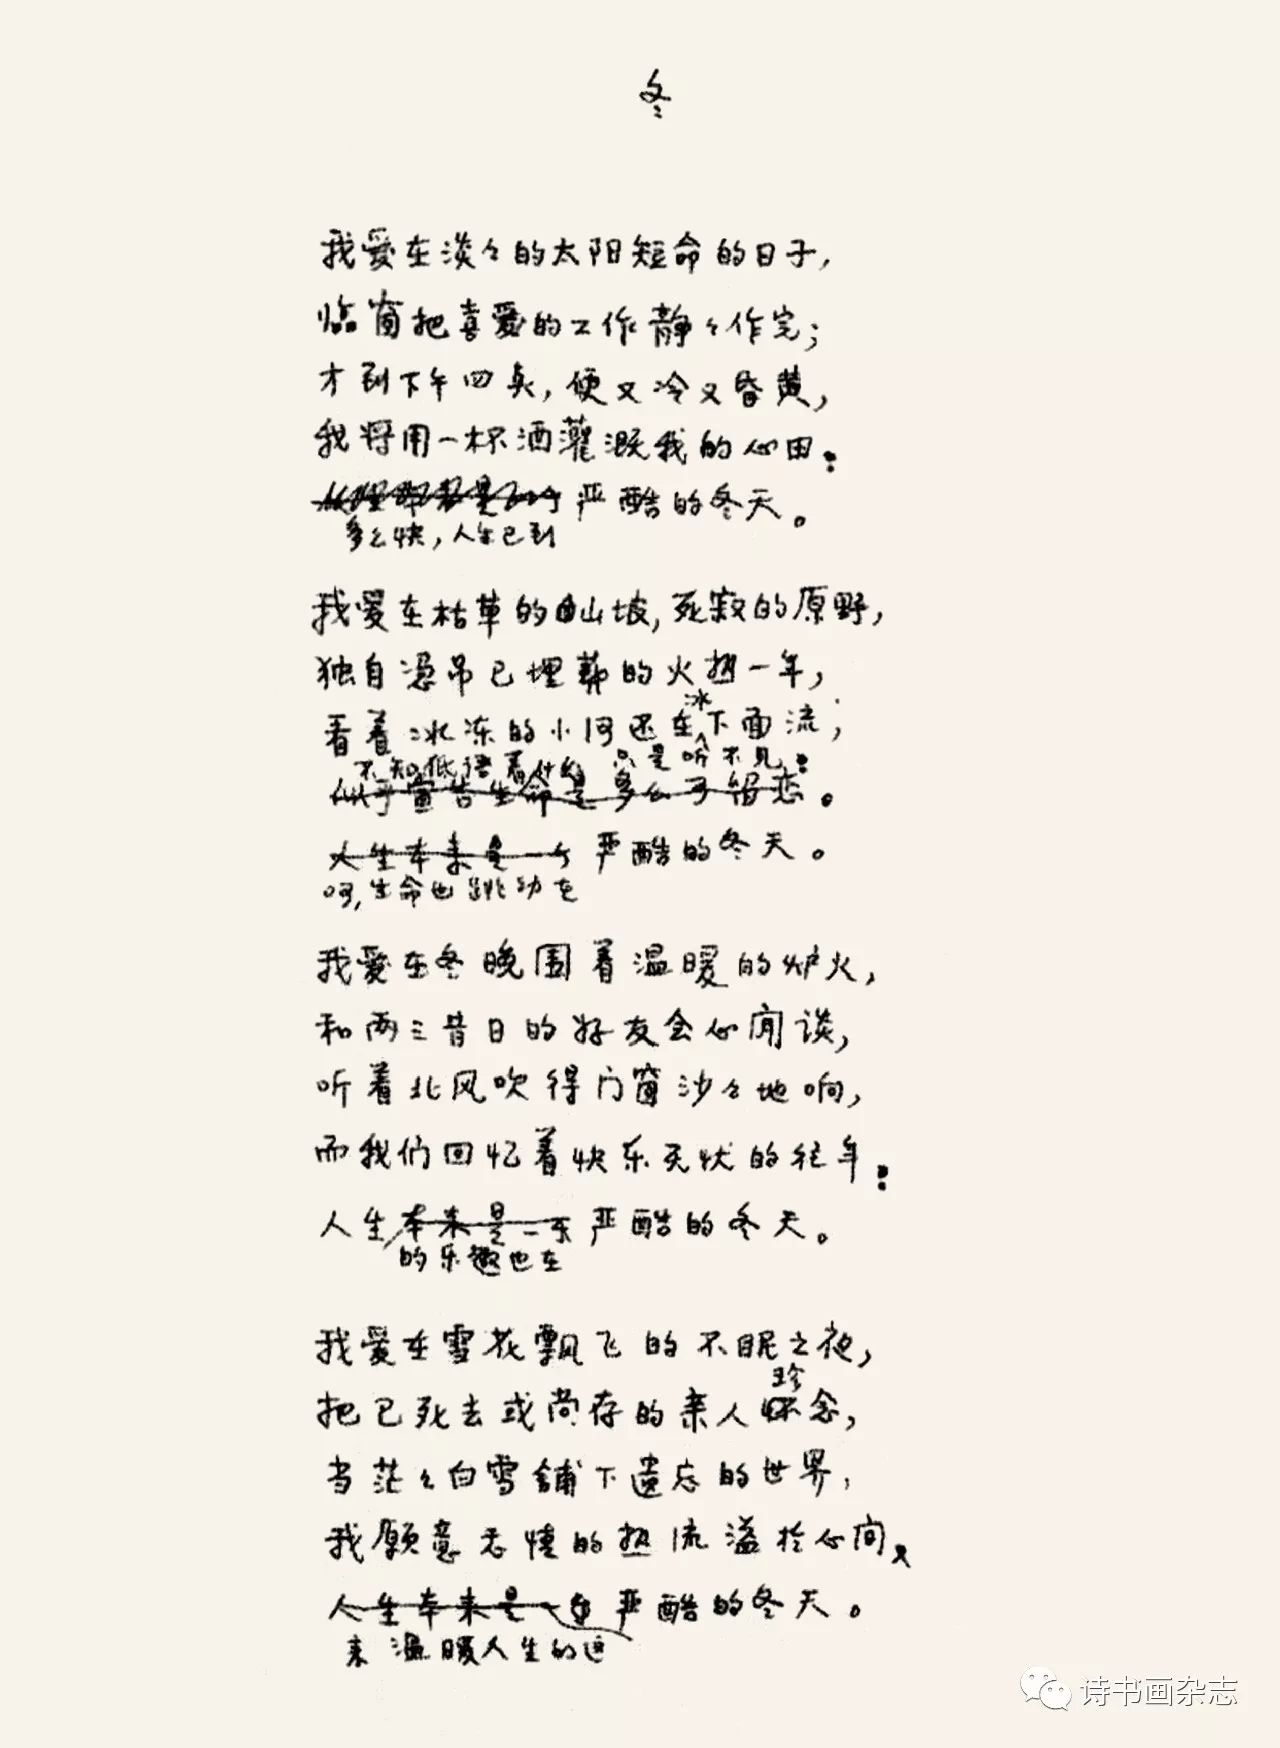 冬
我爱在淡々的太阳短命的日子，
临窗把喜爱的工作静々作完；
才到下午四点，便又冷又昏黄，
我将用一杯酒灌溉我的心田：
人生本来是一个严酷的冬天。
多么快，人生已到
我爱在枯草的山坡，死寂的原野，
独自凭吊已埋葬的火热一年，
冰
看着冰冻的小河还在下面流；
不知低语着什么 只是听不见：
似乎宣告生命是多么可留恋。
人生本来是一个严酷的冬天。
呵，生命也跳动在
我爱在冬晚围着温暖的炉火，
和两三昔日的好友会心闲谈，
听着北风吹得门窗沙々地响，
而我们回忆着快乐无忧的往年：
人生本来是一个严酷的冬天。
的乐趣也在
我爱在雪花飘飞的不眠之夜，
珍
把已死去或尚存的亲人怀念，
当茫々白雪铺下遗忘的世界，
我愿意无情的热流溢于心间，
人生本来是一个严酷的冬天。
来温暖人生的这
诗书画杂志